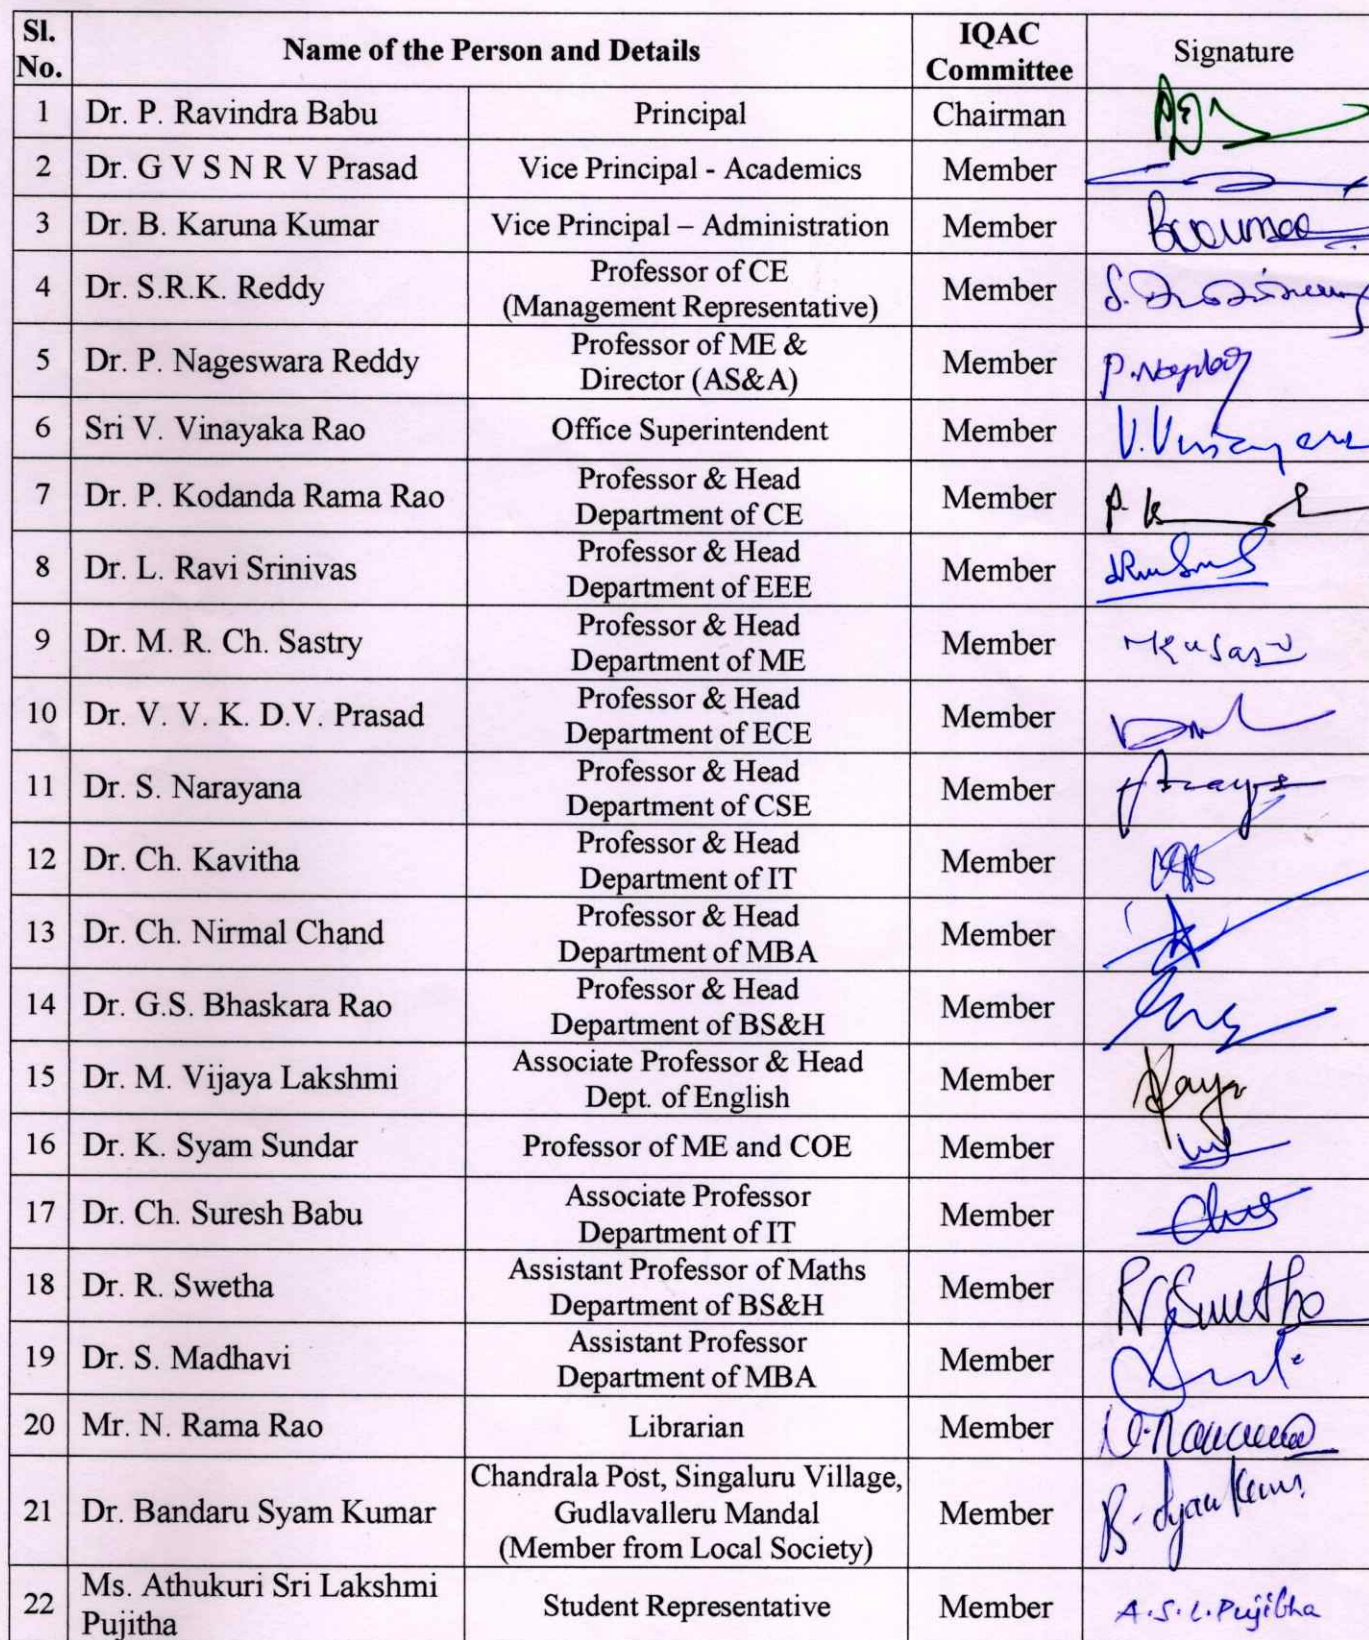 Sl. No. Name of the Person and Details IQAC Committee Signature
1 Dr. P. Ravindra Babu Principal Chairman
2 Dr. G V S N R V Prasad Vice Principal - Academics Member
3 Dr. B. Karuna Kumar Vice Principal – Administration Member
4 Dr. S.R.K. Reddy Professor of CE
(Management Representative) Member
5 Dr. P. Nageswara Reddy Professor of ME &
Director (AS&A) Member
6 Sri V. Vinayaka Rao Office Superintendent Member
7 Dr. P. Kodanda Rama Rao Professor & Head
Department of CE Member
8 Dr. L. Ravi Srinivas Professor & Head
Department of EEE Member
9 Dr. M. R. Ch. Sastry Professor & Head
Department of ME Member
10 Dr. V. V. K. D.V. Prasad Professor & Head
Department of ECE Member
11 Dr. S. Narayana Professor & Head
Department of CSE Member
12 Dr. Ch. Kavitha Professor & Head
Department of IT Member
13 Dr. Ch. Nirmal Chand Professor & Head
Department of MBA Member
14 Dr. G.S. Bhaskara Rao Professor & Head
Department of BS&H Member
15 Dr. M. Vijaya Lakshmi Associate Professor & Head
Dept. of English Member
16 Dr. K. Syam Sundar Professor of ME and COE Member
17 Dr. Ch. Suresh Babu Associate Professor
Department of IT Member
18 Dr. R. Swetha Assistant Professor of Maths
Department of BS&H Member
19 Dr. S. Madhavi Assistant Professor
Department of MBA Member
20 Mr. N. Rama Rao Librarian Member
21 Dr. Bandaru Syam Kumar Chandrala Post, Singaluru Village,
Gudlavalleru Mandal
(Member from Local Society) Member
22 Ms. Athukuri Sri Lakshmi
Pujitha Student Representative Member A.S.L.Pujitha